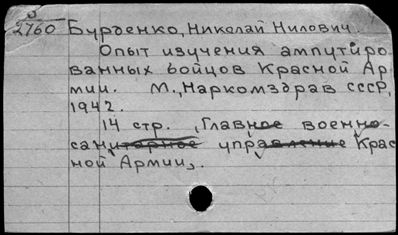 5
2760 Бурденко, Николай Нилович.
Опыт изучения ампутиро
ванных бойцов Красной Ар
мии. М., Наркомздрав СССР,
1942.
14 стр. , Главное военно-
санитарное управление Крас
ной Армии,.